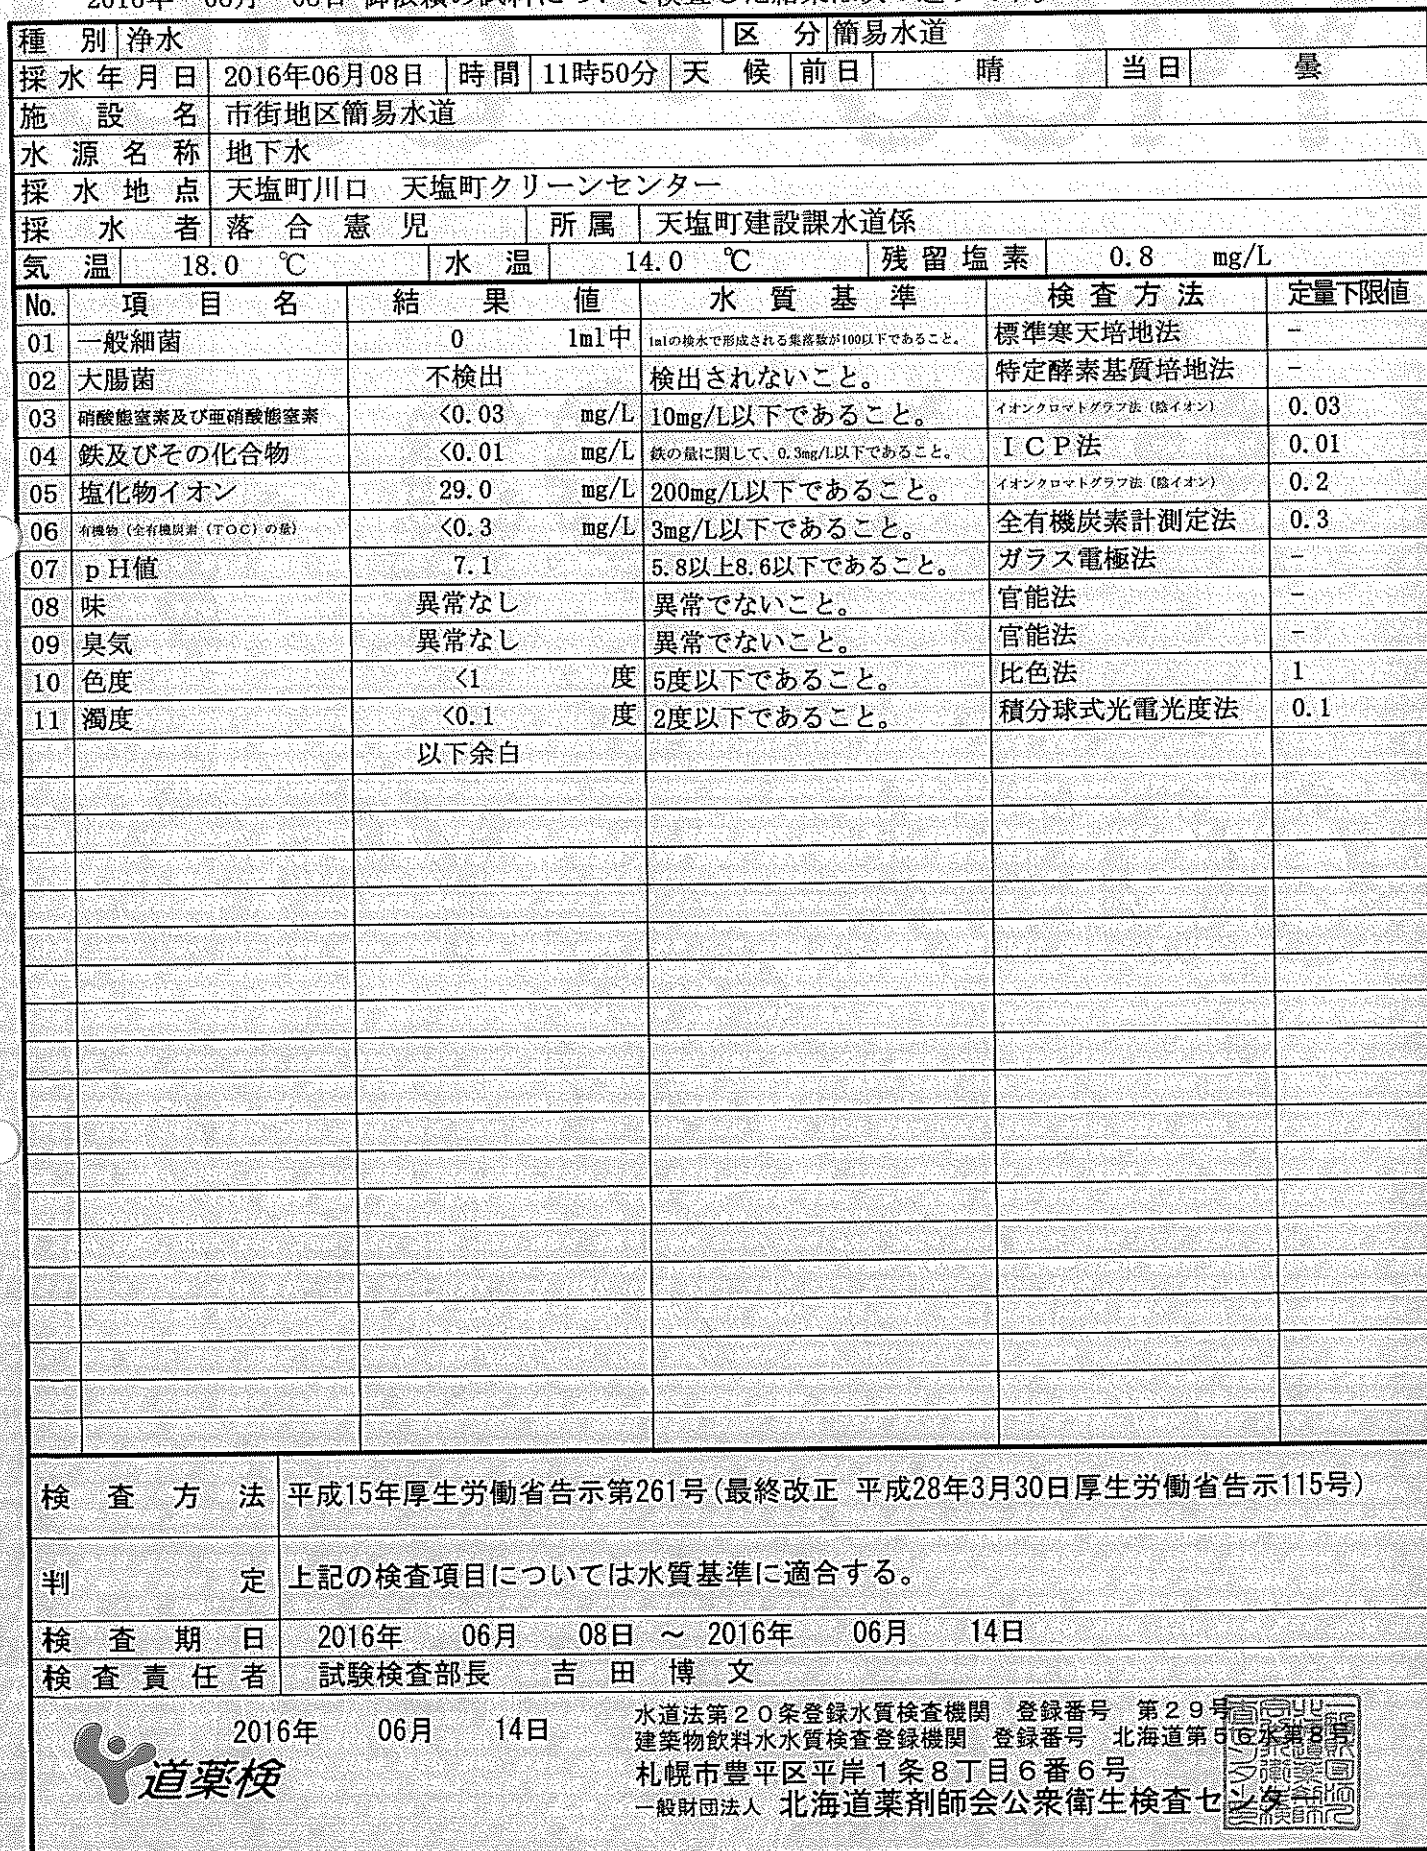 種別 浄水 区分 簡易水道
採水年月日 2016年06月08日 時間 11時50分 天候 前日 晴 当日 曇
施設名 市街地区簡易水道
水源名称 地下水
採水地点 天塩町川口 天塩町クリーンセンター
採水者 落合憲児 所属 天塩町建設課水道係
気温 18.0 ℃ 水温 14.0 ℃ 残留塩素 0.8 mg/L
No. 項目名 結果値 水質基準 検査方法 定量下限値
01 一般細菌 0 1ml中 1mlの検水で形成される集落数が100以下であること。 標準寒天培地法 -
02 大腸菌 不検出 検出されないこと。 特定酵素基質培地法 -
03 硝酸態窒素及び亜硝酸態窒素 <0.03 mg/L 10mg/L以下であること。 イオンクロマトグラフ法(陰イオン) 0.03
04 鉄及びその化合物 <0.01 mg/L 鉄の量に関して、0.3mg/L以下であること。 ICP法 0.01
05 塩化物イオン 29.0 mg/L 200mg/L以下であること。 イオンクロマトグラフ法(陰イオン) 0.2
06 有機物(全有機炭素(TOC)の量) <0.3 mg/L 3mg/L以下であること。 全有機炭素計測定法 0.3
07 pH値 7.1 5.8以上8.6以下であること。 ガラス電極法 -
08 味 異常なし 異常でないこと。 官能法 -
09 臭気 異常なし 異常でないこと。 官能法 -
10 色度 <1 度 5度以下であること。 比色法 1
11 濁度 <0.1 度 2度以下であること。 積分球式光電光度法 0.1
以下余白
検査方法 平成15年厚生労働省告示第261号(最終改正 平成28年3月30日厚生労働省告示115号)
判定 上記の検査項目については水質基準に適合する。
検査期日 2016年 06月 08日 ~ 2016年 06月 14日
検査責任者 試験検査部長 吉田博文
2016年 06月 14日
道薬検
水道法第20条登録水質検査機関 登録番号 第29号
建築物飲料水水質検査登録機関 登録番号 北海道第56水第8号
札幌市豊平区平岸1条8丁目6番6号
一般財団法人 北海道薬剤師会公衆衛生検査センター